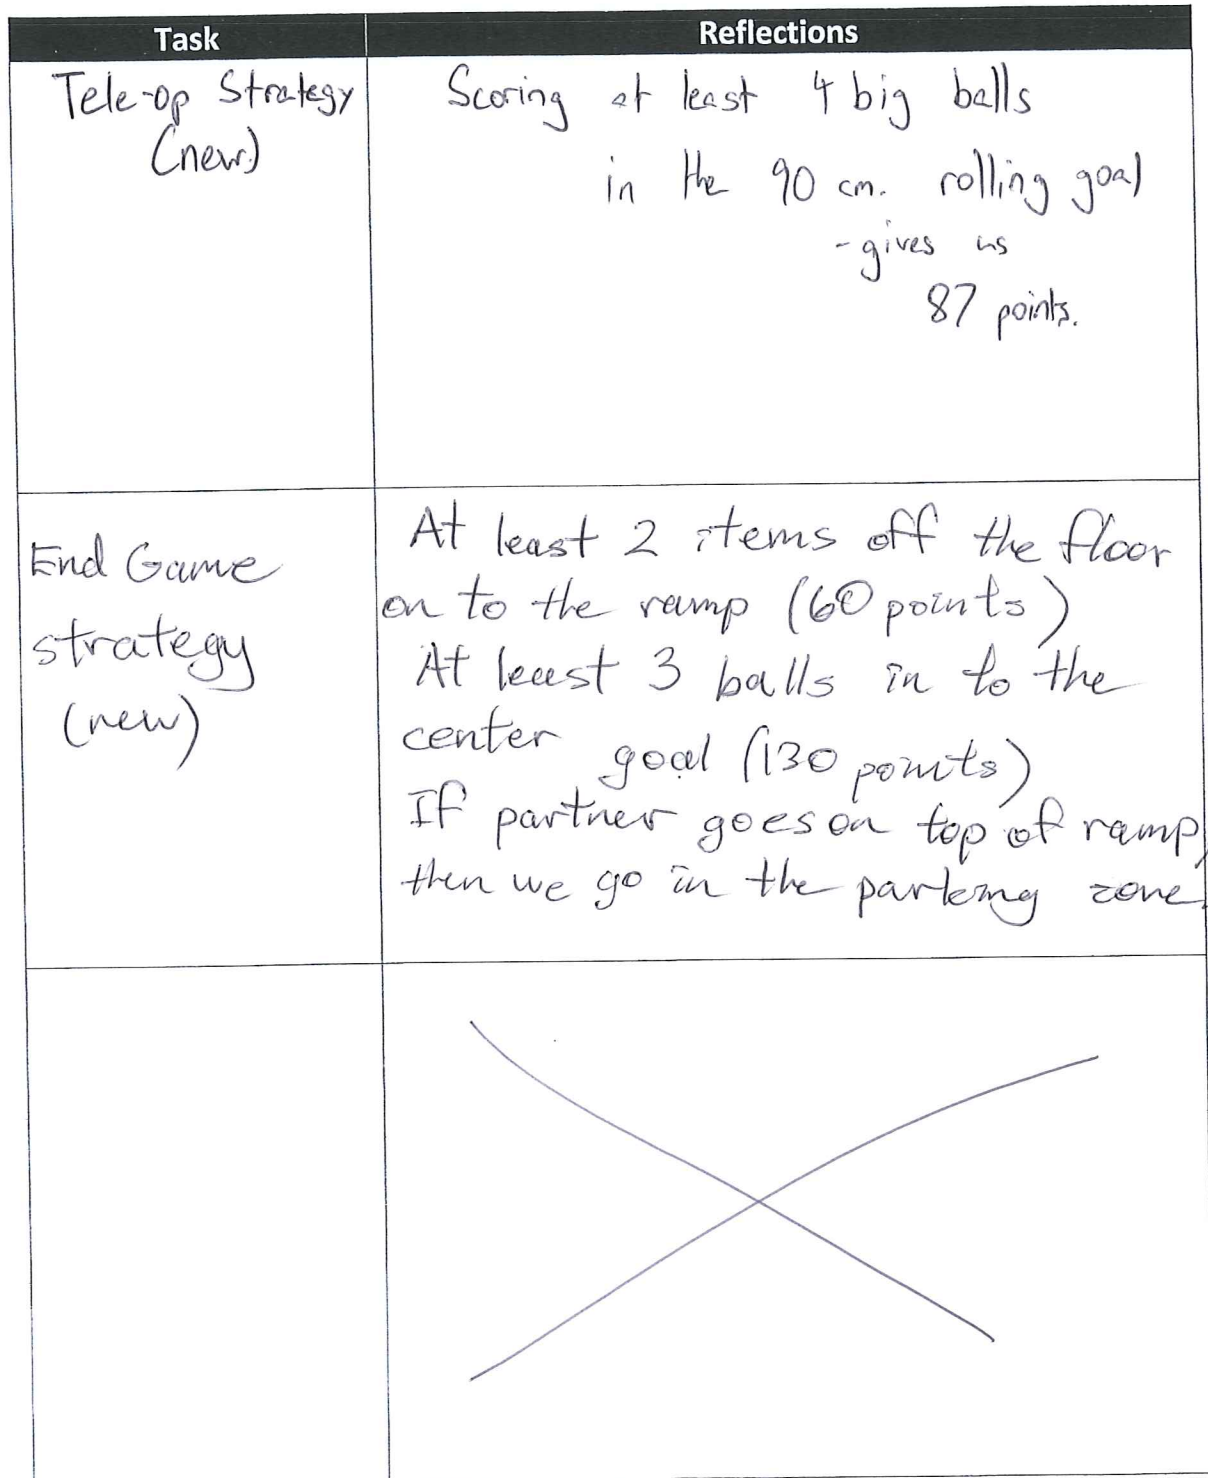 Task
Reflections
Tele-op Strategy
(new)
Scoring at least 4 big balls
in the 90 cm. rolling goal
- gives us
87 points.
End Game
strategy
(new)
At least 2 items off the floor
on to the ramp (60 points)
At least 3 balls in to the
center goal (130 points)
If partner goes on top of ramp,
then we go in the parking zone.